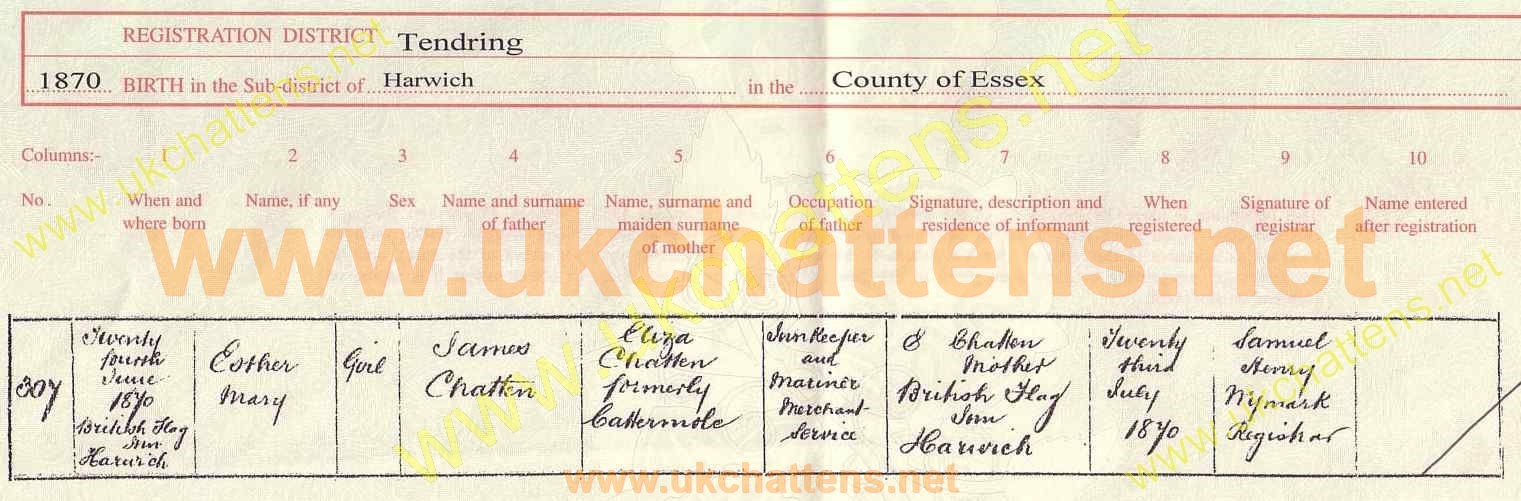 REGISTRATION DISTRICT Tendring
1870 BIRTH in the Sub-district of Harwich in the County of Essex
Columns:- 1 2 3 4 5 6 7 8 9 10
No. When and where born
Name, if any
Sex
Name and surname of father
Name, surname and maiden surname of mother
Occupation of father
Signature, description and residence of informant
When registered
Signature of registrar
Name entered after registration
307
Twenty
fourth
June
1870
British Flag
Inn
Harwich
Esther
Mary
Girl
James
Chatten
Eliza
Chatten
formerly
Cattermole
Innkeeper
and
Mariner
Merchant
Service
E Chatten
Mother
British Flag
Inn
Harwich
Twenty
third
July
1870
Samuel
Henry
Wymark
Registrar
www.ukchattens.net
www.ukchattens.net
www.ukchattens.net
www.ukchattens.net
www.ukchattens.net
www.ukchattens.net
www.ukchattens.net